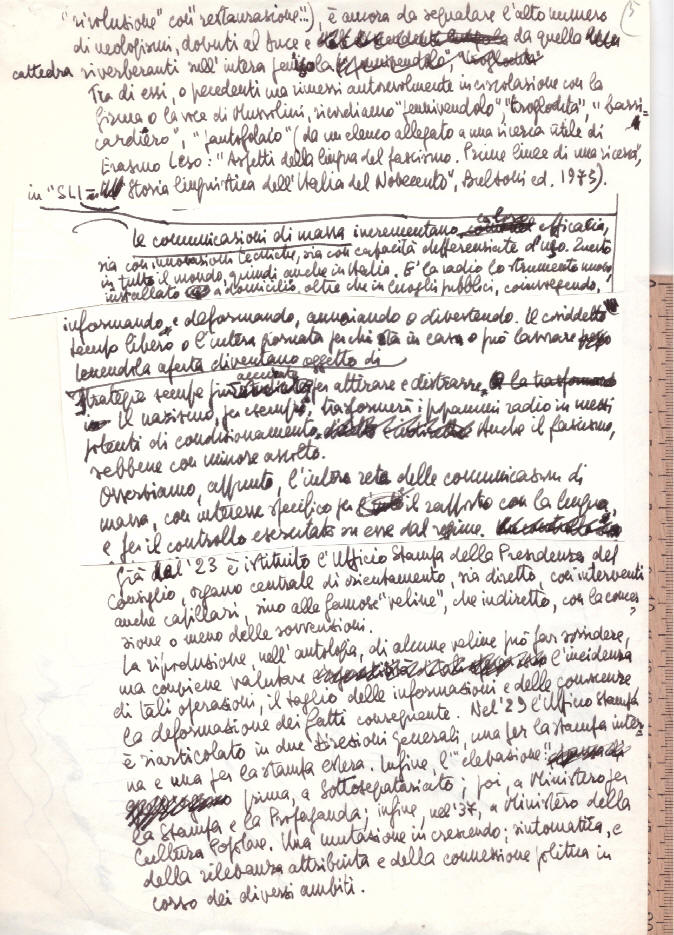 5
"rivoluzione" con "restaurazione"...), è ancora da segnalare l'alto numero
di neologismi, dovuti al Duce e da quella
cattedra riverberanti nell'intera penisola
Tra di essi, o precedenti ma rimessi autorevolmente in circolazione con la
firma o la voce di Mussolini, ricordiamo "pennivendolo", "troglodita", "barri-
cardiero", "pantofolaio" (da un elenco allegato a una ricerca utile di
Erasmo Leso: "Aspetti della lingua del fascismo. Prime linee di una ricerca",
in "SLI Storia linguistica dell'Italia del Novecento", Bulzoni ed. 1973).
Le comunicazioni di massa incrementano efficacia,
sia con innovazioni tecniche, sia con capacità differenziate d'uso. Questo
in tutto il mondo, quindi anche in Italia. E' la radio lo strumento nuovo,
installato a domicilio, oltre che in luoghi pubblici, coinvolgendo,
informando e deformando, annoiando o divertendo. Il cosiddetto
tempo libero o l'intera giornata per chi sta in casa o può lavorare
tenendola aperta diventano oggetto di
strategia sempre più accurata per attirare e distrarre.
Il nazismo, per esempio, trasformerà i programmi radio in mezzi
potenti di condizionamento. Anche il fascismo,
sebbene con minore ascolto.
Osserviamo, appunto, l'intera rete delle comunicazioni di
massa, con interesse specifico per il rapporto con la lingua,
e per il controllo esercitato su esse dal regime.
Già dal '23 è istituito l'Ufficio Stampa della Presidenza del
Consiglio, organo centrale di orientamento, sia diretto, con interventi
anche capillari, sino alle famose "veline", che indiretto, con la conces
sione o meno delle sovvenzioni.
La riproduzione, nell'antologia, di alcune veline può far sorridere,
ma conviene valutare l'incidenza
di tali operazioni, il taglio delle informazioni e delle conoscenze
la deformazione dei fatti conseguente. Nel '29 l'Ufficio Stampa
è riarticolato in due direzioni generali, una per la stampa inter-
na e una per la stampa estera. Infine, l'"elevazione":
prima, a Sottosegretariato; poi, a Ministero per
la Stampa e la Propaganda; infine, nell'37, a Ministero della
Cultura Popolare. Una mutazione in crescendo; sintomatica,
della rilevanza attribuita e della connessione politica in
corso dei diversi ambiti.